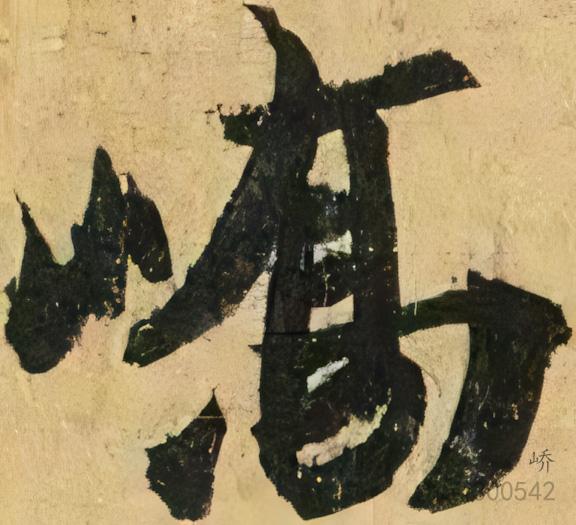 嶠
峤
00542